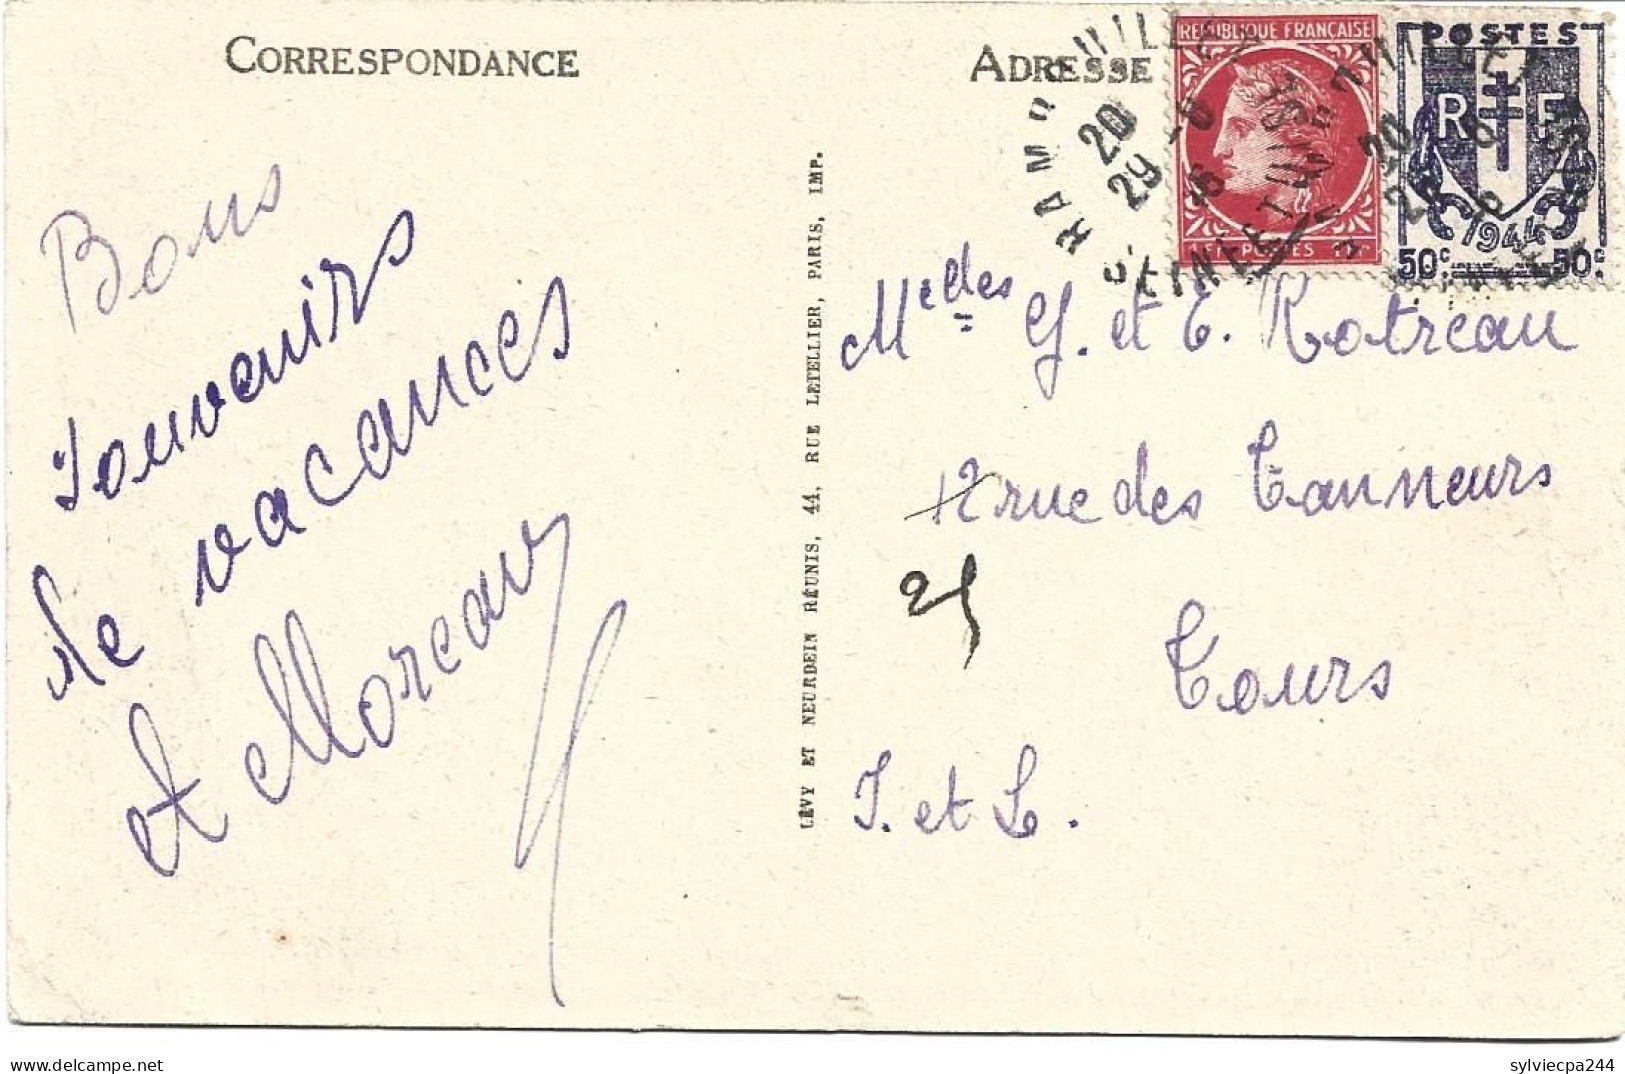 CORRESPONDANCE
Bons
souvenirs
de vacances
et Moreau
LÉVY ET NEURDEIN RÉUNIS, 44, RUE LETELLIER, PARIS, IMP.
ADRESSE
REPUBLIQUE FRANÇAISE
POSTES
POSTES
R F
1944
50c. 50c.
20
29 - 8
Melles G. et E. Rotreau
12 rue des Tanneurs
25
Tours
I. et L.
sylviecpa244